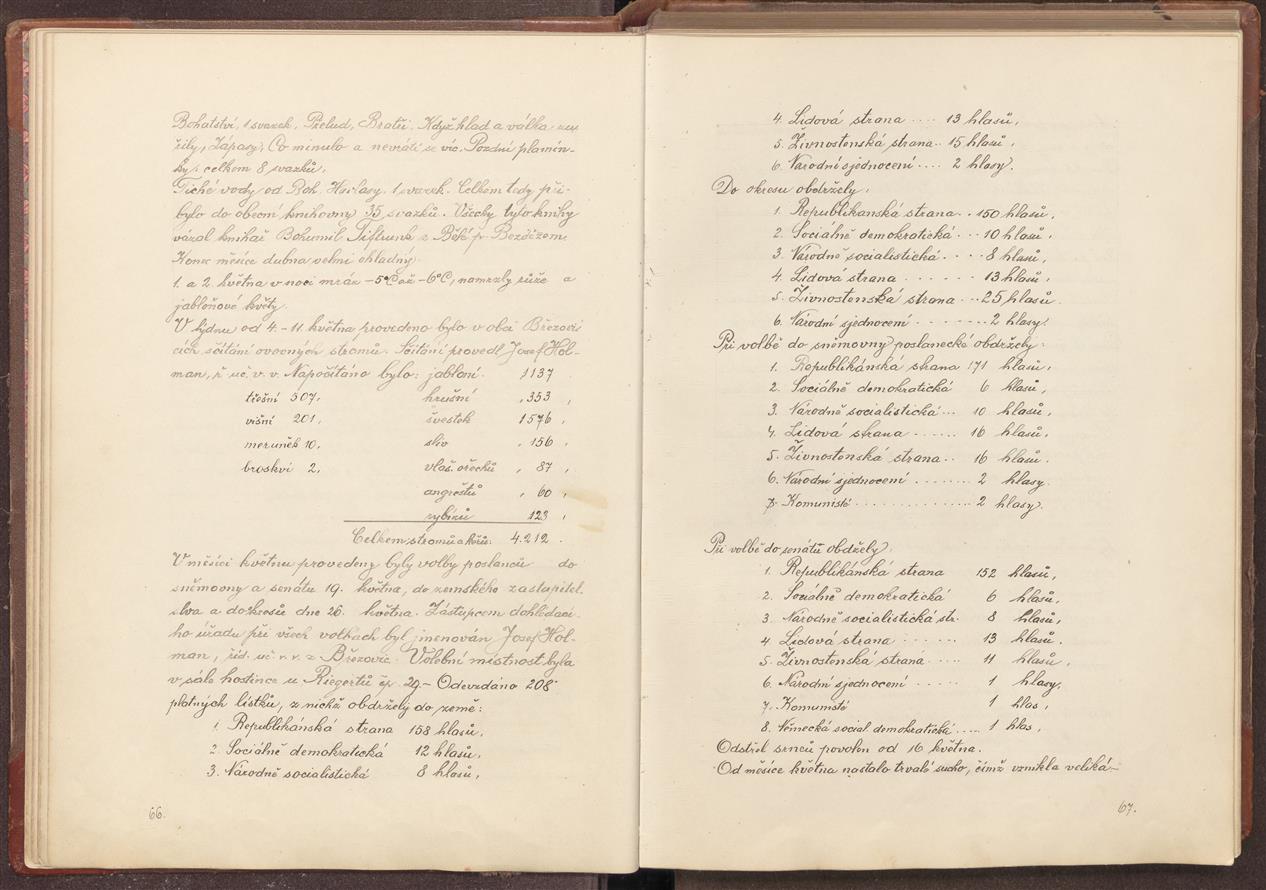 Bohatství, 1 svazek, Přelud, Bratři, Když hlad a válka zuu
řily, Zápasy, Co minulo a nevrátí se víc, Pozdní plamín-
ky, celkem 8 svazků.
Tiché vody od Boh. Havlasy, 1 svazek. Celkem tedy při-
bylo do obecní knihovny 35 svazků. Všecky tyto knihy
vázal knihař Bohumil Tiftrunk z Bělé p. Bezdězem.
Konec měsíce dubna velmi chladný.
1. a 2. května v noci mráz -5°C až -6°C, namrzly růže a
jabloňové květy.
V týdnu od 4.-11. května provedeno bylo v obci Březovi
cích sčítání ovocných stromů. Sčítání provedl Josef Hol-
man, ř. uč. v. v. Napočítáno bylo: jabloní 1137
třešní 507, hrušní 353,
višní 201, švestek 1576,
meruněk 10, sliv 156,
broskví 2, vlaš. ořechů 87,
angreštů 60,
rybízů 123,
Celkem stromů a keřů: 4.212.
V měsíci květnu provedeny byly volby poslanců do
sněmovny a senátu 19. května, do zemského zastupitel
stva a do okresů dne 26. května. Zástupcem dohlédací
ho úřadu při všech volbách byl jmenován Josef Hol-
man, říd. uč. v. v. z Březovic. Volební místnost byla
v sále hostince u Riegertů čp. 29.- Odevzdáno 208
platných lístků, z nichž obdržely do země:
1. Republikánská strana 158 hlasů,
2. Sociálně demokratická 12 hlasů,
3. Národně socialistická 8 hlasů,
66.
4. Lidová strana .... 13 hlasů,
5. Živnostenská strana.. 15 hlasů,
6. Národní sjednocení .... 2 hlasy.
Do okresu obdržely:
1. Republikanská strana.. 150 hlasů,
2. Sociálně demokratická ... 10 hlasů,
3. Národně socialistická.... 8 hlasů,
4. Lidová strana ....... 13 hlasů,
5. Živnostenská strana ... 25 hlasů.
6. Národní sjednocení ........ 2 hlasy.
Při volbě do sněmovny poslanecké obdržely:
1. Republikánská strana 171 hlasů,
2. Sociálně demokratická 6 hlasů,
3. Národně socialistická... 10 hlasů,
4. Lidová strana ....... 16 hlasů,
5. Živnostenská strana.. 16 hlasů.
6. Národní sjednocení ........ 2 hlasy.
7. Komunisté .............. 2 hlasy.
Při volbě do senátu obdžely:
1. Republikánská strana 152 hlasů,
2. Sociálně demokratická 6 hlasů,
3. Národně socialistická str. 8 hlasů,
4 Lidová strana ...... 13 hlasů.
5. Živnostenská strana ..... 11 hlasů,
6. Národní sjednocení ..... 1 hlasy.
7. Komunisté 1 hlas,
8. Německá social. demokratická ..... 1 hlas,
Odstřel srnců povolen od 16 května.
Od měsíce května nastalo trvalé sucho, čímž vznikla veliká-
67.